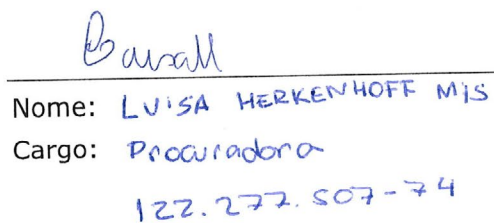 Nome: LUISA HERKENHOFF Mis
Cargo: Procuradora
122.277.507-74